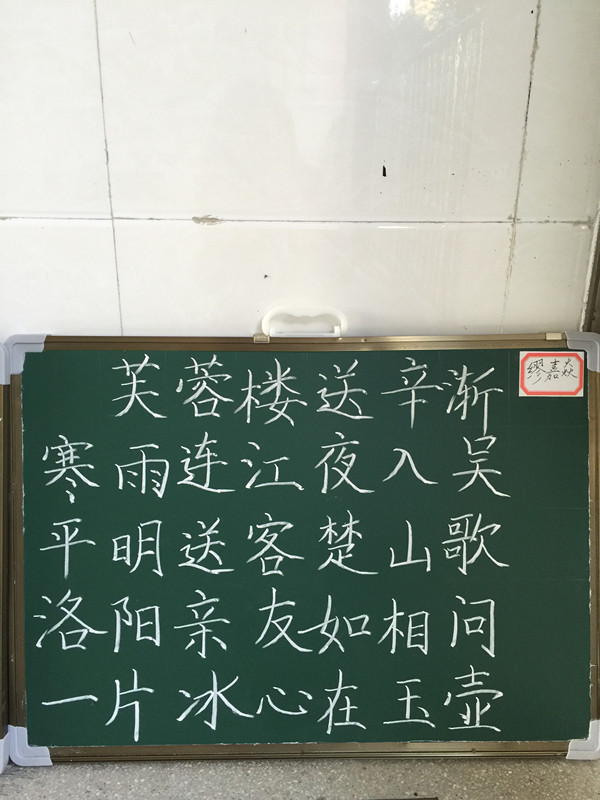 芙蓉楼送辛渐
寒雨连江夜入吴
平明送客楚山歌
洛阳亲友如相问
一片冰心在玉壶
缪嘉焱